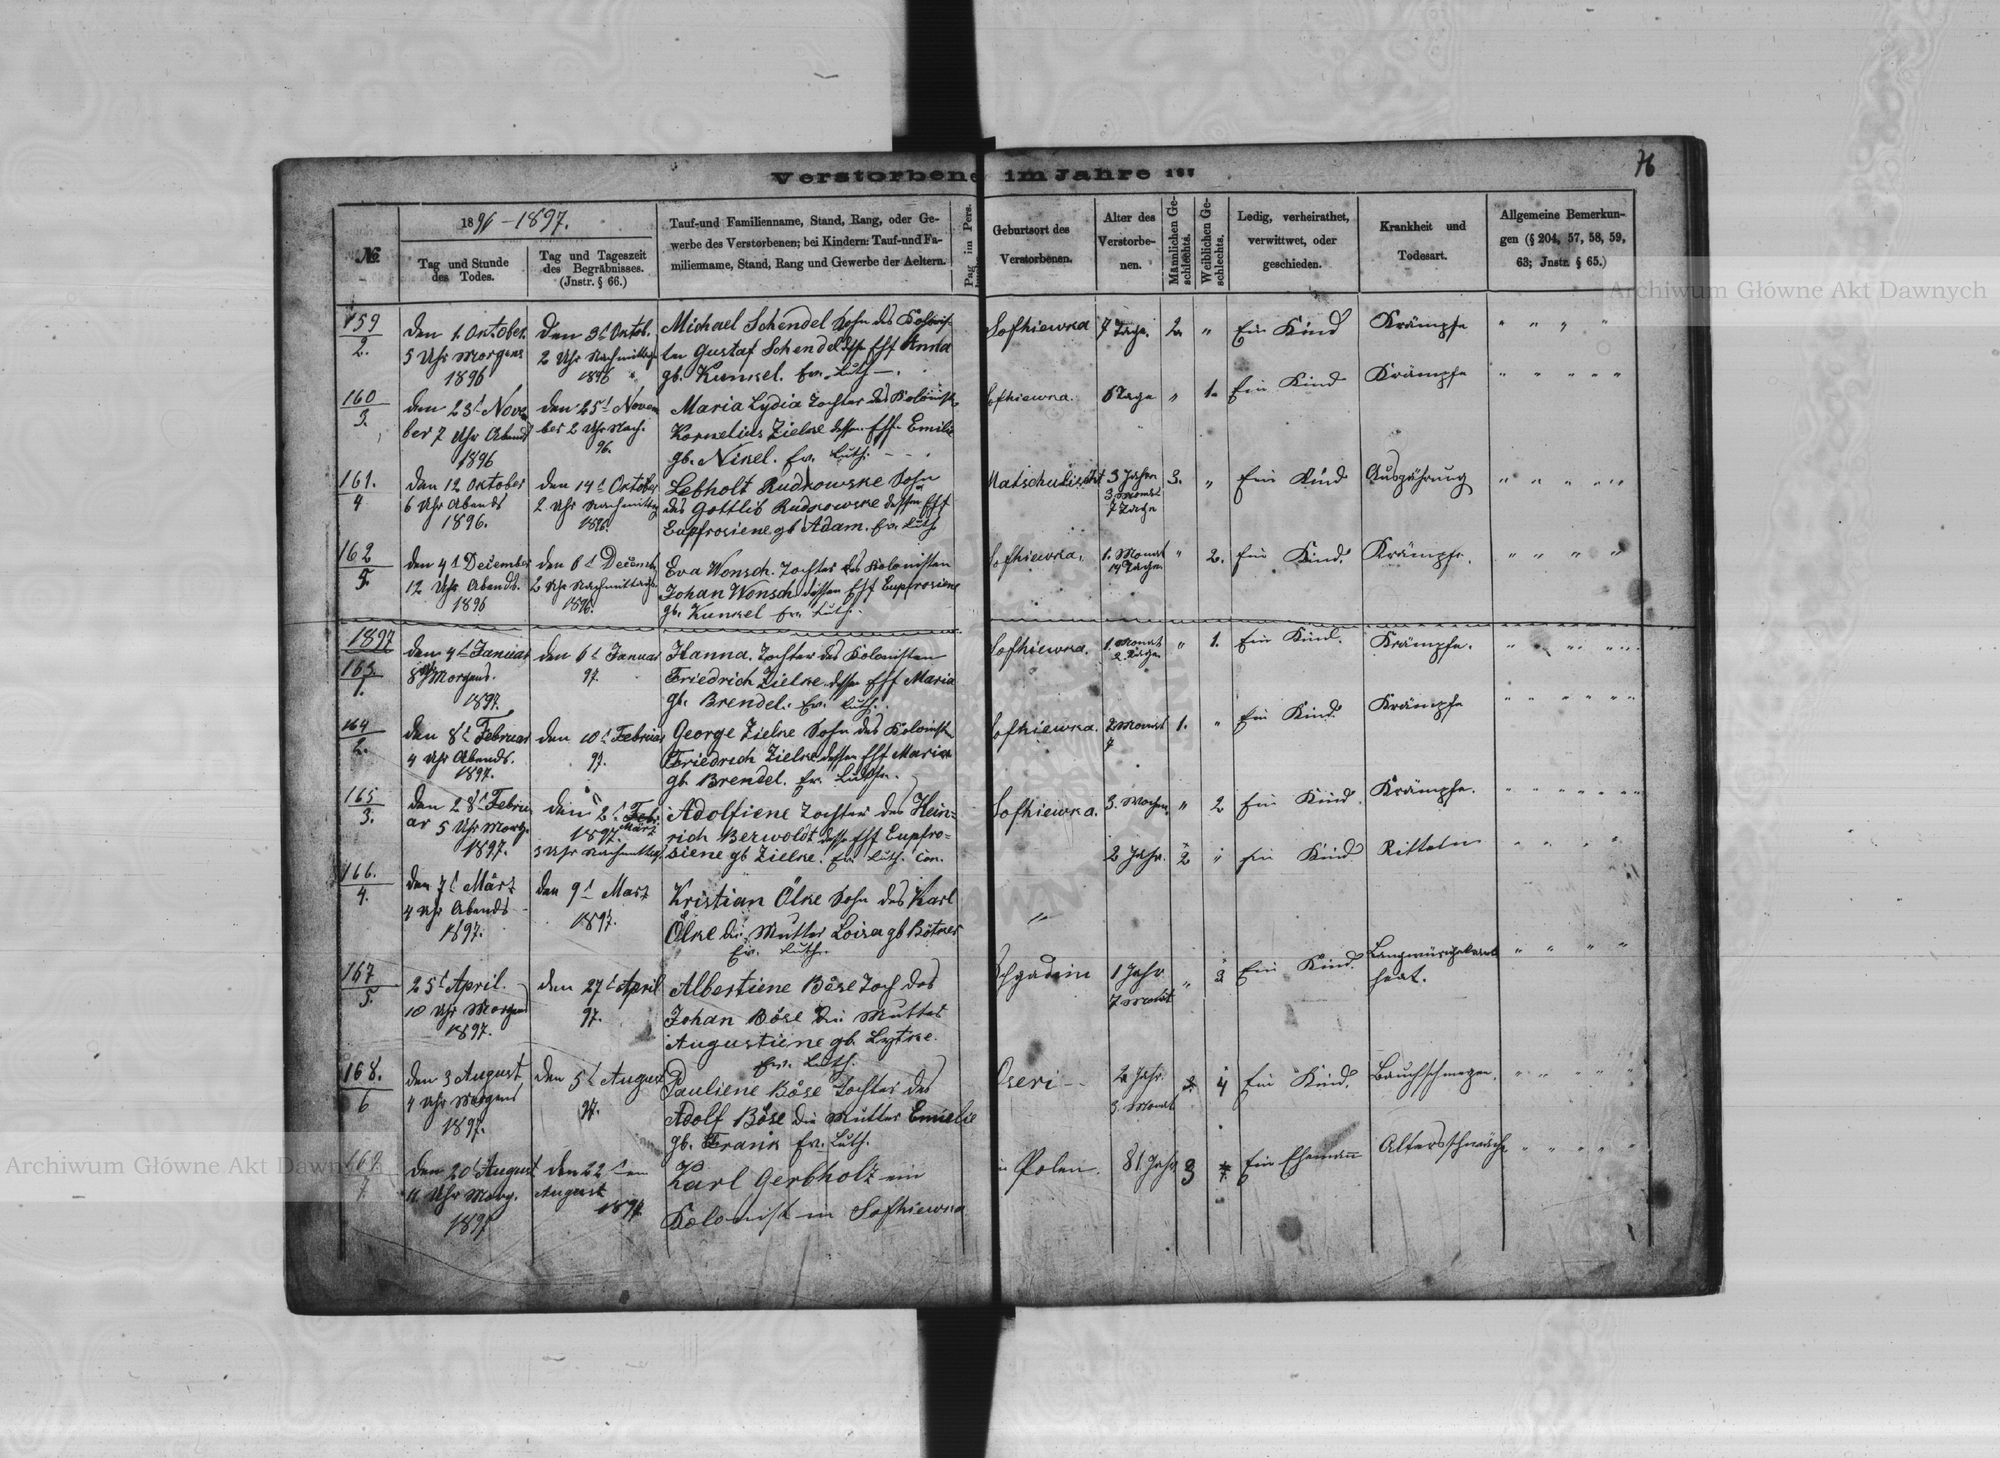 76
Verstorbene im Jahre 187
№
1896-1897.
Tag und Stunde
des Todes.
Tag und Tageszeit
des Begräbnisses.
(Jnstr. § 66.)
Tauf-und Familienname, Stand, Rang, oder Ge-
werbe des Verstorbenen; bei Kindern: Tauf-und Fa-
milienname, Stand, Rang und Gewerbe der Aeltern.
Pag im Pers.
Geburtsort des
Verstorbenen.
Alter des
Verstorbe-
nen.
Männlichen Ge-
schlechts.
Weiblichen Ge-
schlechts.
Ledig, verheirathet,
verwittwet, oder
geschieden.
Krankheit und
Todesart.
Allgemeine Bemerkun-
gen (§ 204, 57, 58, 59,
63; Jnstr. § 65.)
159
2.
den 1. Oktober
5 Uhr Morgens
1896
den 3t Oktob.
2 Uhr Nachmittag
1896
Michael Schendel Sohn des Kolonis-
ten Gustaf Schendel desse Ehf Anna
gb. Kunkel. Ev. Luth
Sofhiewka 7 Tage. 2. " Ein Kind Krämpfe " " " "
160
3.
den 23t Novem
ber 7 Uhr Abend
1896
den 25t Novem
ber 2 Uhr Nach.
96.
Maria Lydia Tochter des Kolonist
Kornelius Zielke dessen Ehf Emilie
gb. Nikel. Ev. Luth.
Sofhiewka. 6 Tage " 1. Ein Kind Krämpfe " " " " "
161.
4
den 12 Oktober
6 Uhr Abends
1896.
den 14t Oktober
2 Uhr Nachmittag
1896.
Lebholt Rudkowske Sohn
des Gottlib Rudkowske dessen Ehf
Eupfrosiene gb Adam. Ev. Luth
3 Jahr
3 Monat
7 Tage
3. " Ein Kind Auszährung " " " " "
162
5.
den 4t December
12 Uhr Abends.
1896
den 6t Decemb
2 Uhr Nachmittags
1896.
Eva Wensch. Tochter des Kolonisten
Johan Wensch dessen Ehf Eupfrosiene
gb. Kunkel Ev. Luth.
Sofhiewka. 1. Monat
14 Tage
" 2. Ein Kind. Krämpfe. " " " "
1897
163
1.
den 4t Januar
8 Uhr Morgens.
1897.
den 6t Januar
97.
Hanna. Tochter des Kolonisten
Friedrich Zielke dessen Ehf Maria
gb. Brendel. Ev. Luth.
Sofhiewka. 1. Monat
2. Tage
" 1. Ein Kind. Krämpfe. " " " "
164
2.
den 8t Februar
4 Uhr Abends.
1897.
den 10t Februar
97.
George Zielke Sohn des Kolonist
Friedrich Zielke dessen Ehf Maria
gb. Brendel. Ev. Luther.
Sofhiewka. 2 Monat
7
1. " Ein Kind Krämpfe " " " " "
165
3.
den 28t Febru
ar 5 Uhr Morg.
1897.
den 2t Feb.
März
1897.
3 Uhr Nachmittag
Adolfiene Tochter des Hein-
rich Berwoldt desse Ehf Eupfro-
siene gb Zielke. Ev. Luth. Con.
Sofhiewka. 3. Wochen " 2 Ein Kind. Krämpfe. " " " "
166.
4.
den 7t März
4 Uhr Abends
1897.
den 9t März
1897.
Kristian Ölke Sohn des Karl
Ölke die Mutter Loisa gb Bötker
Ev. Luth.
" 2 Jahr. 2 " Ein Kind Ritteln " " " "
167
5.
25t April.
10 Uhr Morgens
1897.
den 27t April
97.
Albertiene Böse Toch des
Johan Böse Die Mutter
Augustiene gb. Lytke.
Ev. Luth.
1 Jahr
7 Monat
" 3 Ein Kind. " " " "
168.
6
den 3 August
4 Uhr Morgens
1897.
den 5t August
97.
Pauliene Böse Tochter des
Adolf Böse die Mutter Emielie
gb. Frank Ev. Luth.
Oseri 2 Jahr.
3. Monat
4 Ein Kind. " " " "
169
7.
den 20t August
11 Uhr Morg.
1897
den 22ten
August
1897
Karl Gerbholz ein
Kolonist in Sofhiewka
in Polen. 81 Jahr 3 " Ein Ehemann Altersschwäche " " " "
Archiwum Główne Akt Dawnych
Archiwum Główne Akt Dawnych